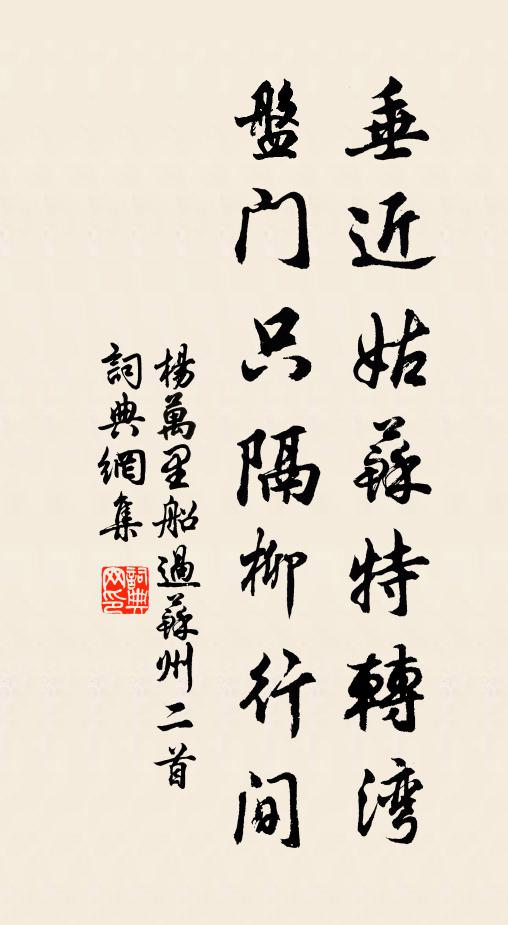 垂近姑蘇特轉湾
盤门只隔柳行間
楊萬里船過蘇州二首
詞典網集
詞典网印